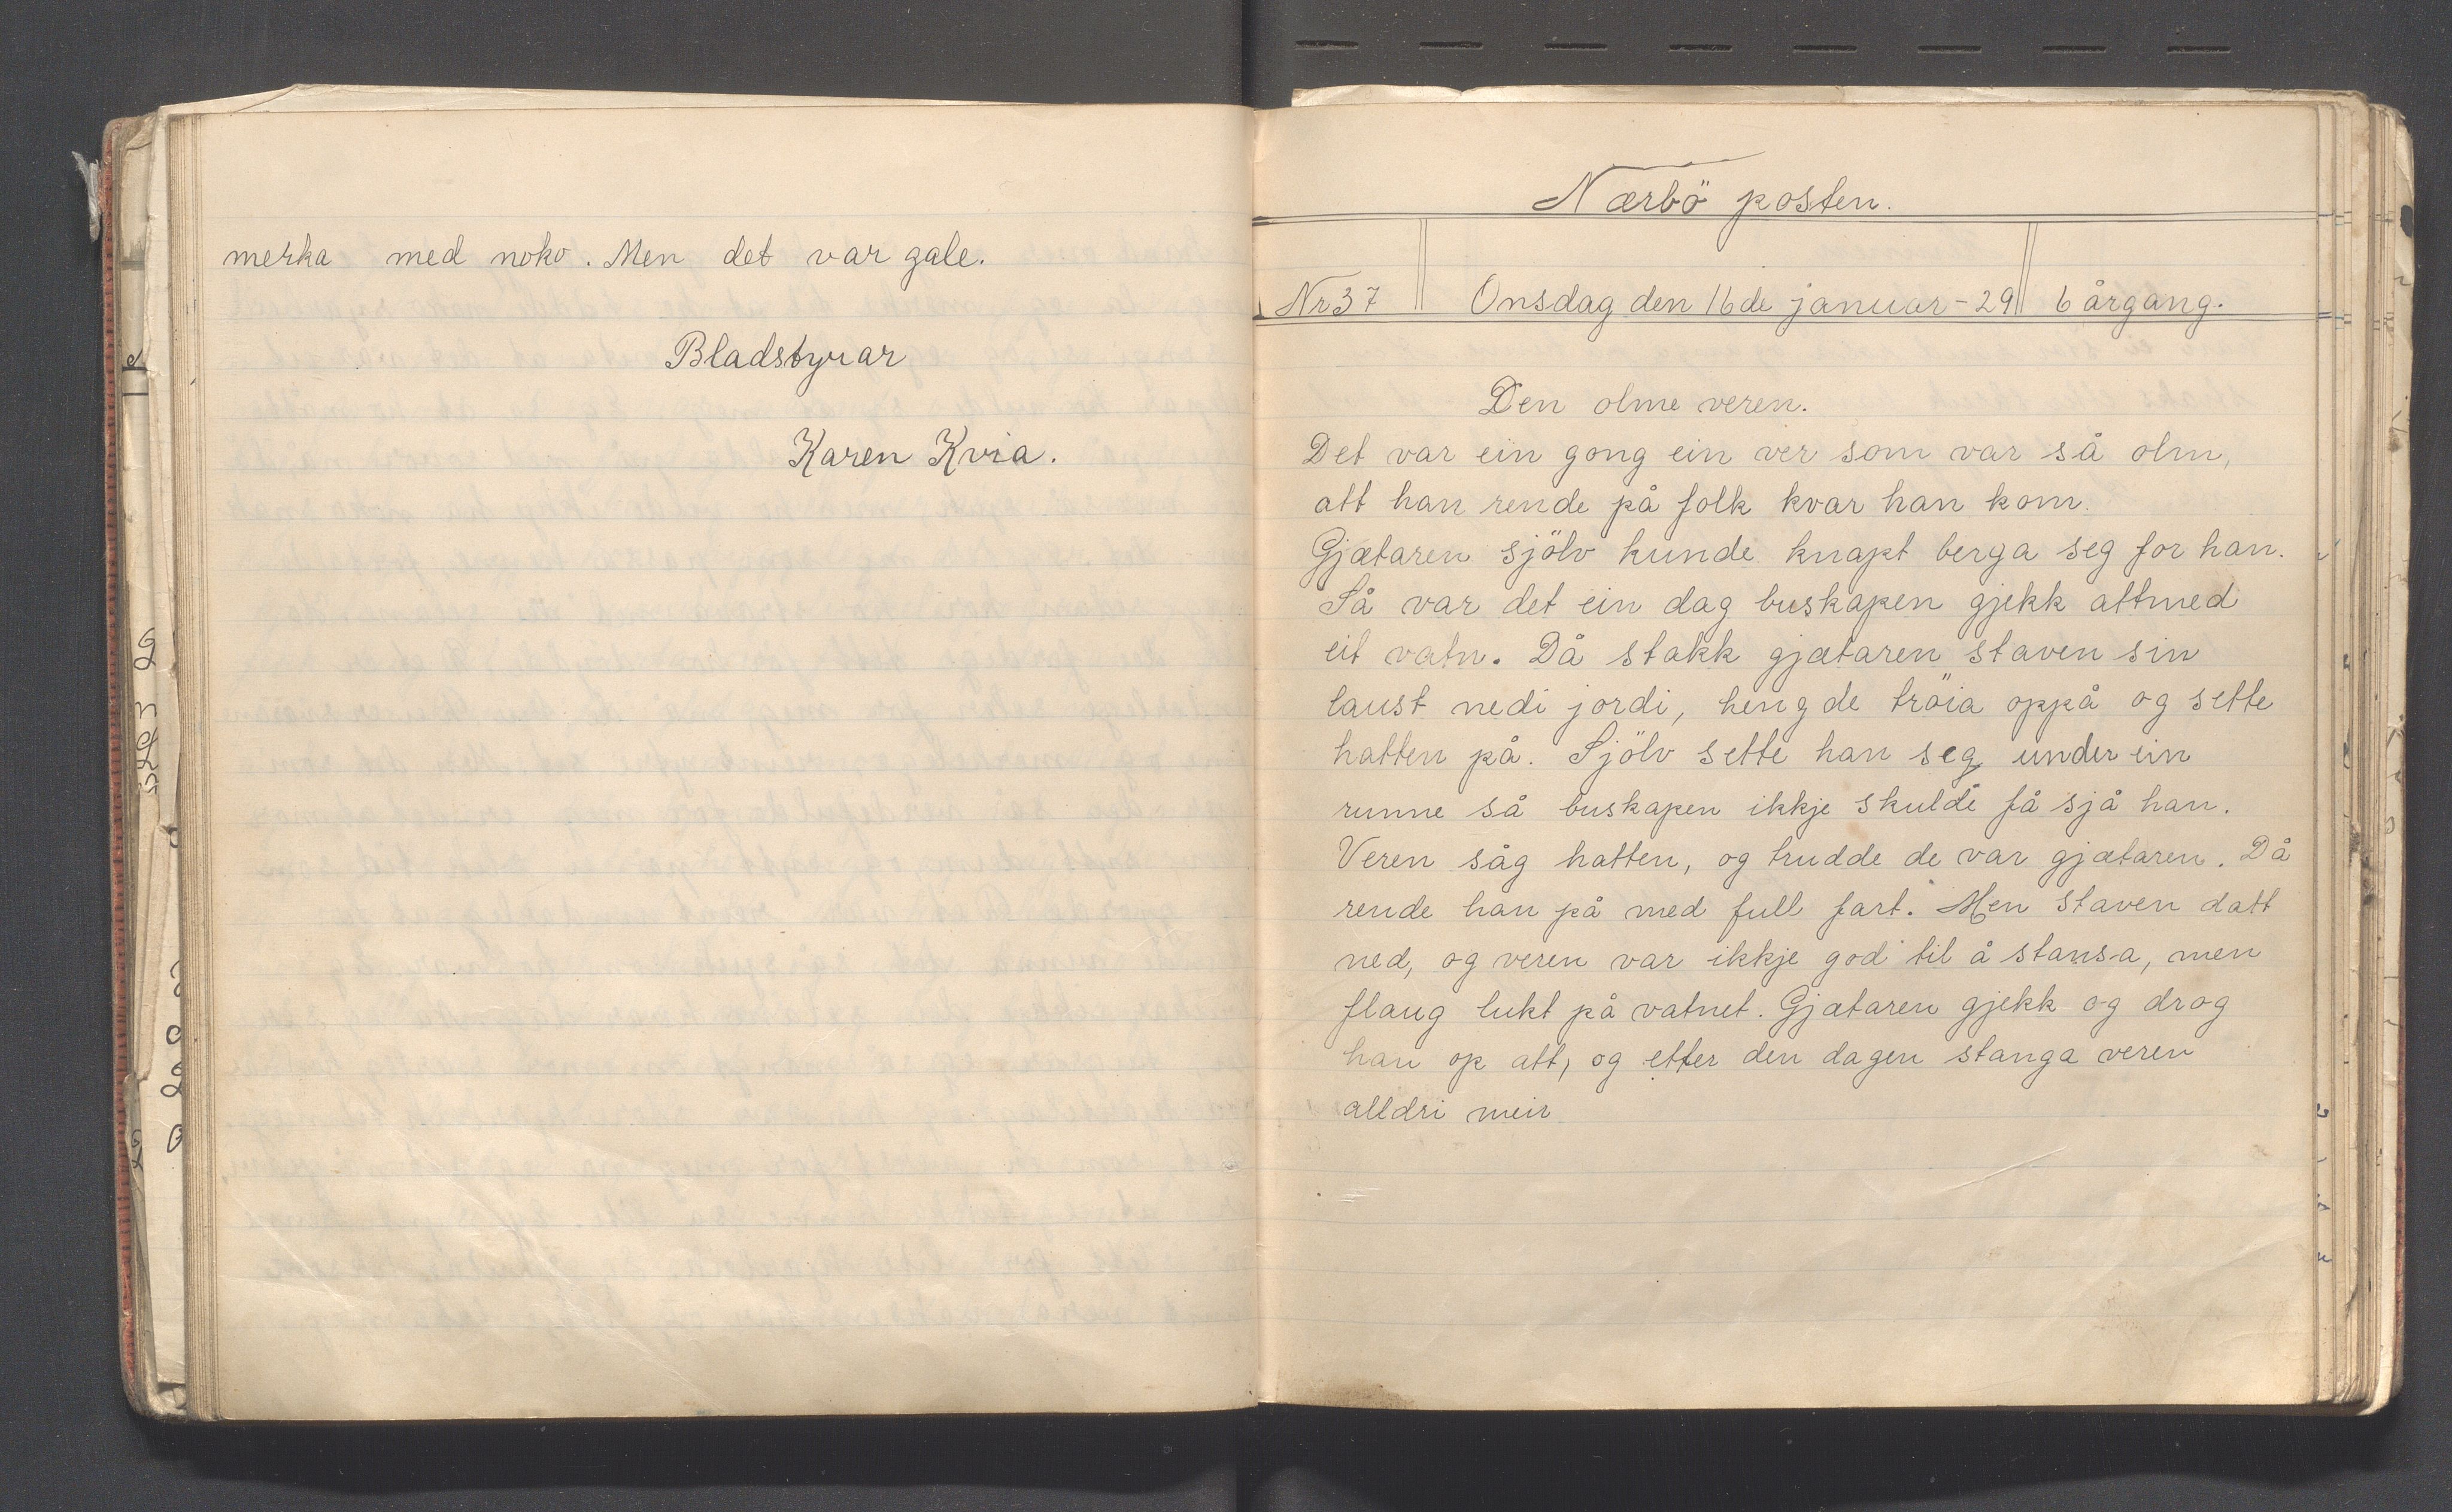 merka med noko. Men det var gale.
Bladstyrar
Karen Kvia.
Nærbö posten.
Nr 37 Onsdag den 16de januar - 29 6 årgang.
Den olme veren.
Det var ein gong ein ver som var så olm,
att han rende på folk kvar han kom.
Gjætaren sjölv kunde knapt berga seg for han.
Så var det ein dag buskapen gjekk attmed
eit vatn. Då stakk gjætaren staven sin
laust nedi jordi, hengde tröia oppå og sette
hatten på. Sjölv sette han seg under ein
runne så buskapen ikkje skulde få sjå han.
Veren såg hatten, og trudde de var gjætaren. Då
rende han på med full fart. Men staven datt
ned, og veren var ikkje god til å stansa, men
flaug lukt på vatnet. Gjætaren gjekk og drog
han op att, og etter den dagen stanga veren
alldri meir